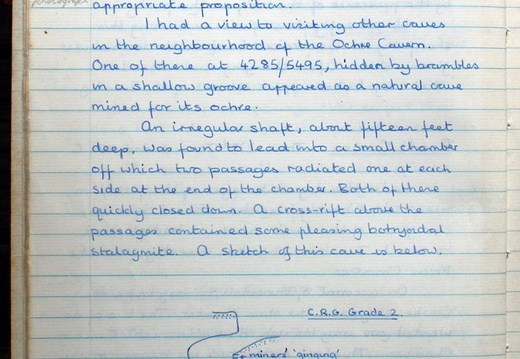 photograph
appropriate proposition.
I had a view to visiting other caves
in the neighbourhood of the Ochre Cavern.
One of these at 4285/5495, hidden by brambles
in a shallow groove appeared as a natural cave
mined for its ochre.
An irregular shaft, about fifteen feet
deep, was found to lead into a small chamber
off which two passages radiated one at each
side at the end of the chamber. Both of these
quickly closed down. A cross-rift above the
passages contained some pleasing botryoidal
stalagmite. A sketch of this cave is below.
C.R.G. Grade 2.
miners' 'ginging'